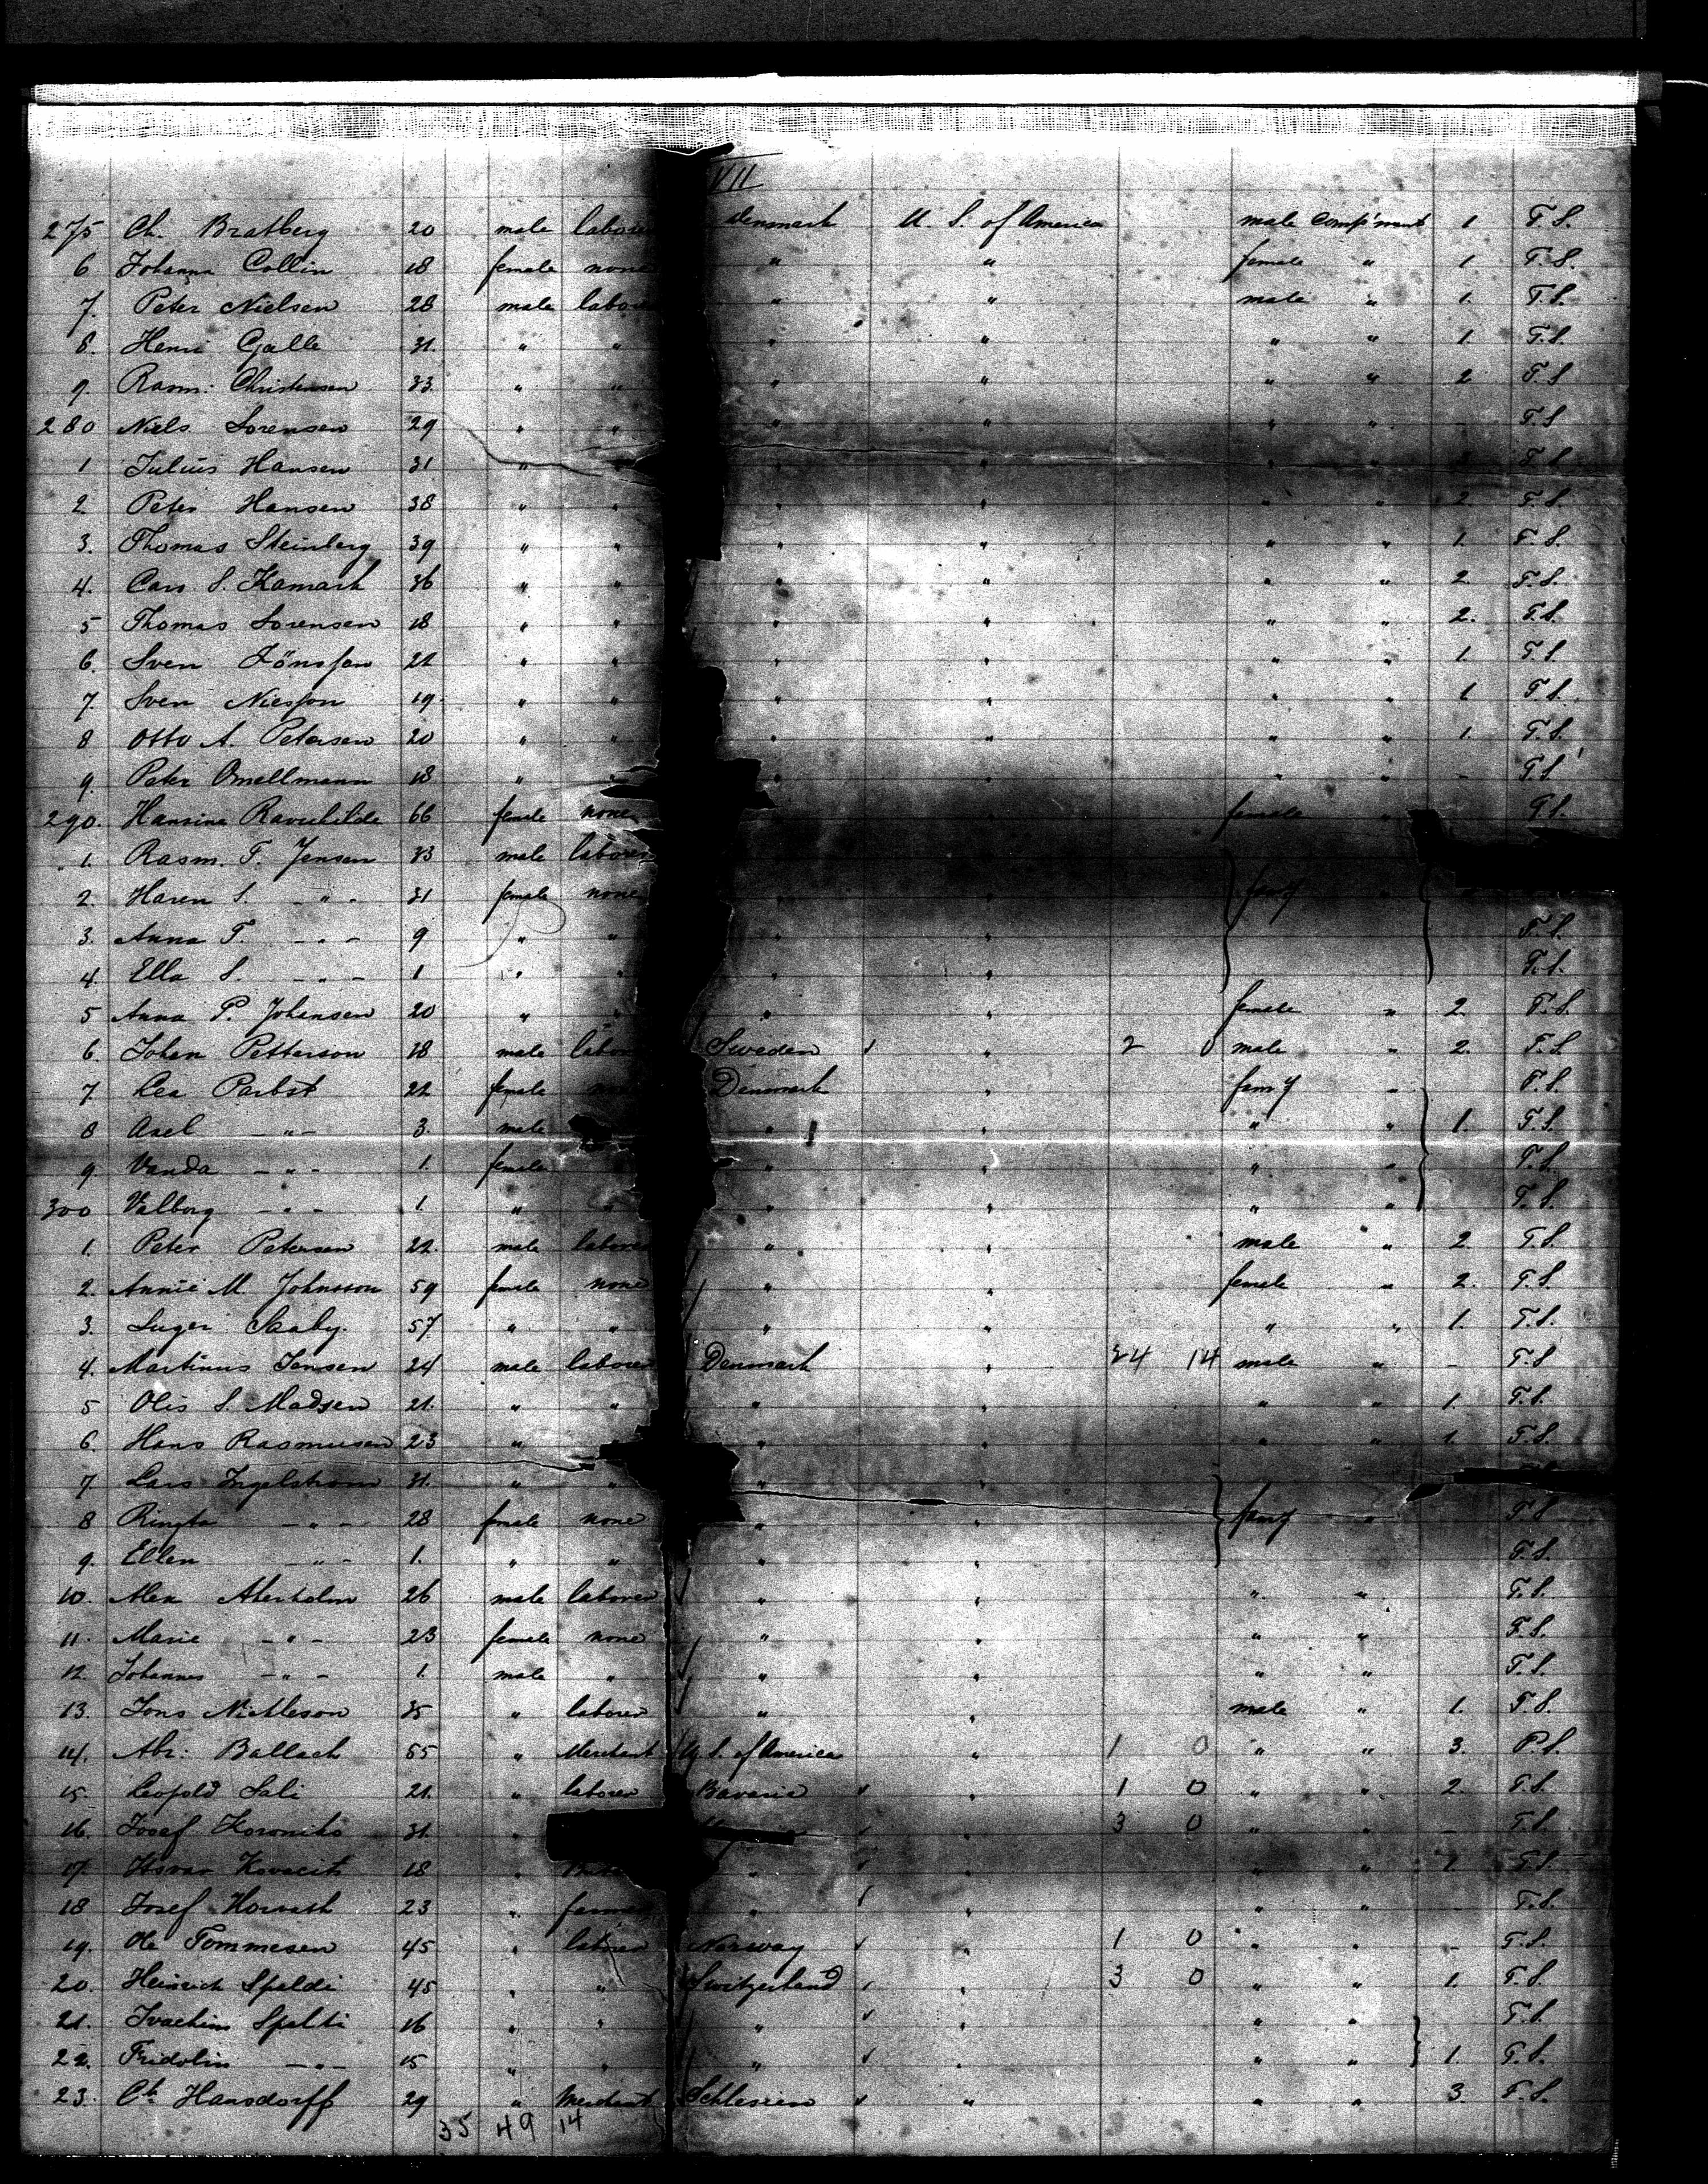 VII
275 Ch. Bratberg 20 male labore denmark U. S. of America male Comp'ment 1 T.S.
6 Johanna Collin 18 female none " " female " 1. T.S.
7. Peter Nielsen 28 male labo " " male " 1. T.S.
8. Henri Galle 31. " " " " " " 1. T.S.
9. Rasm: Christensen 33. " " " " " " 2 T.S
280 Niels Sorensen 29 " " " " " - T.S
1 Julius Hansen 31 " " " " " " T.S
2 Peter Hansen 38 " " " " " " 2. T.S.
3. Thomas Steinberg 39 " " " " " " 1. T.S.
4. Cars S. Kamark 36 " " " " " " 2. T.S.
5 Thomas Sorensen 18 " " " " " " 2. T.S.
6. Sven Jönsson 21 " " " " " " 1. T.S.
7. Sven 19. " " " " " " 1 T.S.
8 Otto A. Petersen 20 " " " " " " 1. T.S.
9. Peter Omellmann 18 " " " " " - T.S
290. Hansine 66 female none " " female " T.S.
1. Rasm. T. Jensen 33 male laborer
2. Karen S. - " - 31 female none " " famy "
3. Anna T. - " - 9 " " " " T.S.
4. Ella S. - " - 1 " " " " T.S.
5 Anna P. Johansen 20 " " " " female " 2 T.S.
6. Johan Petterson 18 male labor Sweden " 2 0 male " 2. T.S.
7. Lea Parbst 22 female Denmark " famy " T.S.
8 Axel - " - 3. male " " " " 1. T.S.
9. Vanda - " - 1. female " " " " T.S.
300 Valborg - " - 1. " " " " " " T.S.
1. Peter Petersen 22. male labore " " male " 2. T.S.
2. Annie M. Johnsson 59 female none " " female " 2. T.S
3. Inger Saaby. 57 " " " " " " 1. T.S.
4. Martinus Jensen 24 male laborer Denmark " 24 14 male " - T.S
5 Olis S. Madsen 21. " " " " " " 1. T.S.
6. Hans Rasmusen 23 " " " " " 1. T.S.
7. Lars Ingelstrom 31. " " " "
8 - " - 28 female none " " famy " T.S
9. Ellen - " - 1. " " " " T.S.
10. Alex Akerholm 26 male laborer " " " " T.S.
11. Marie - " - 23 female none " " " " T.S.
12. Johannes - " - 1. male " " " " " T.S.
13. Jons 35 " laborer " " male " 1. T.S.
14. Abr: Ballach 55 " Merchant U S. of America " 1 0 " " 3. P.S.
15. Leopold Sali 21. " laborer Bavaria " 1 0 " " 2. T.S.
16. Josef 31. " " 3 0 " " - T.S
17. 18 " " " " " 1. T.S
18 Josef Horvath 23 " farme " " " " - T.S.
19. Ole Tommesen 45 " laborer Norway " 1 0 " " - T.S.
20. Heinrich Speldi 45 " " Switzerland " 3 0 " " 1. T.S
21. Joachim Spelti 16 " " " " " " T.S.
22. Fridolin - " - 15 " " " " " " 1. T.S.
23. Ch Hansdorff 29 " Merchant Schlesien " " " 3. T.S.
35 49 14